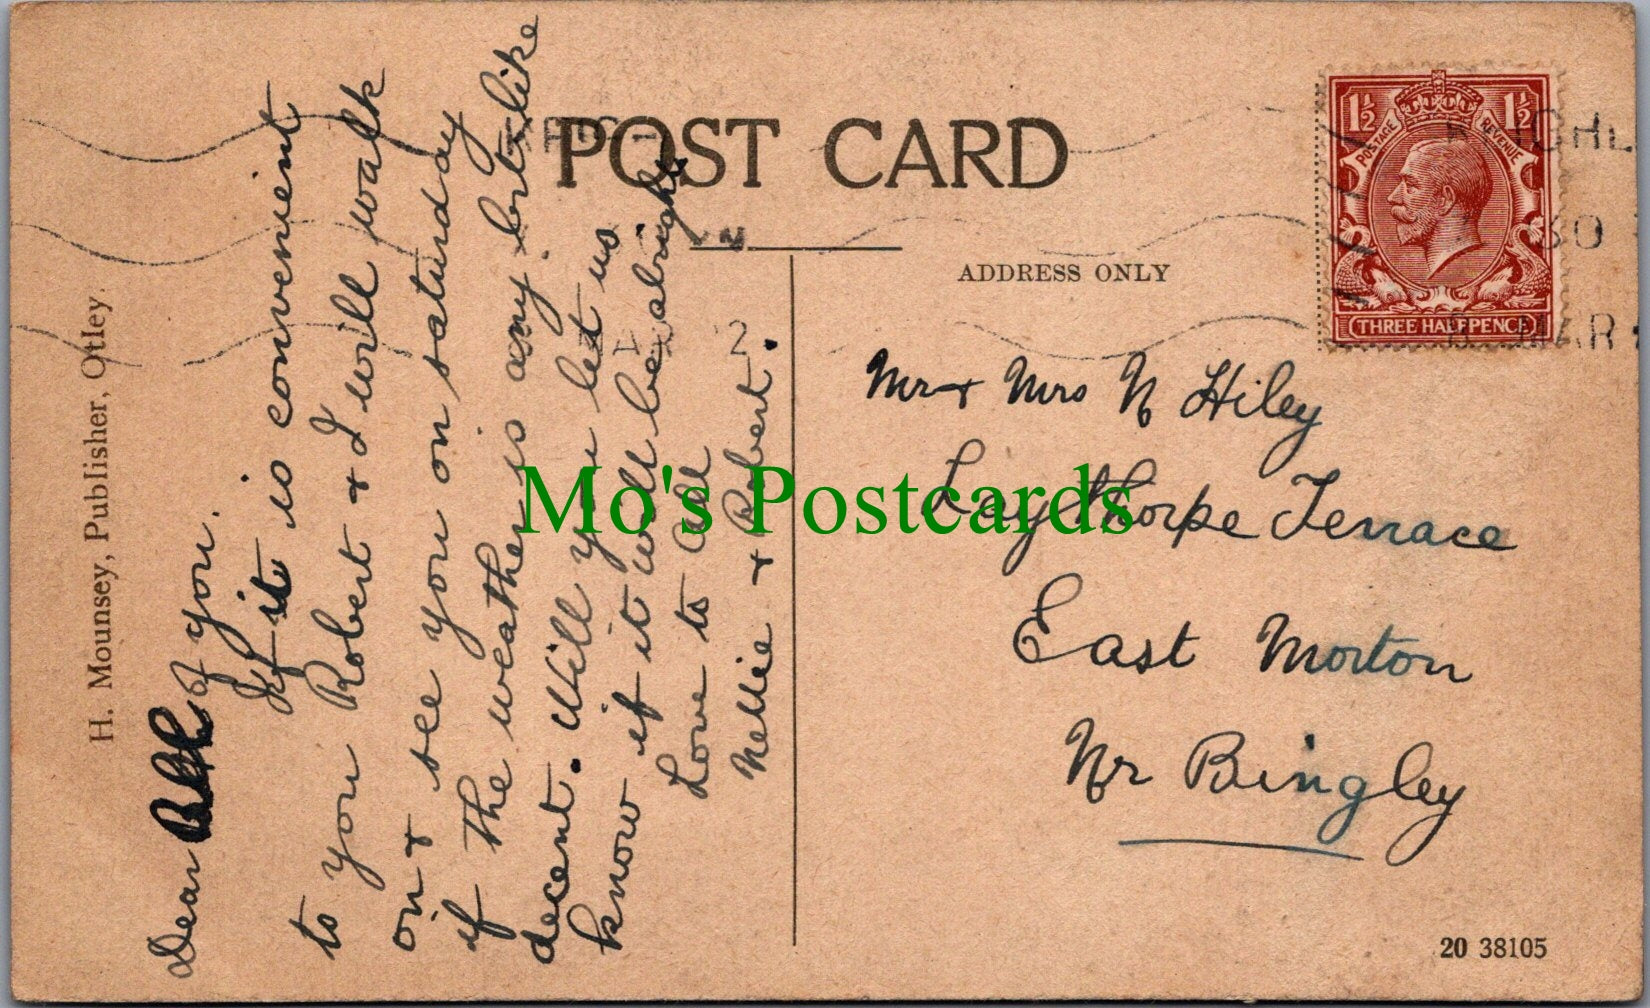 POST CARD
ADDRESS ONLY
H. Mounsey, Publisher, Otley.
Dear Both of you.
If it is convenient
to you Robert & I will walk
on & see you on saturday
if the weather is any bit like
decent. Will you let us
know if it will be alright
Love to All
Nellie & Robert.
Mr & Mrs N Hiley
Laythorpe Terrace
East Morton
Nr Bingley
1½ 1½
POSTAGE REVENUE
THREE HALFPENCE
30
MAR
20 38105
Mo's Postcards